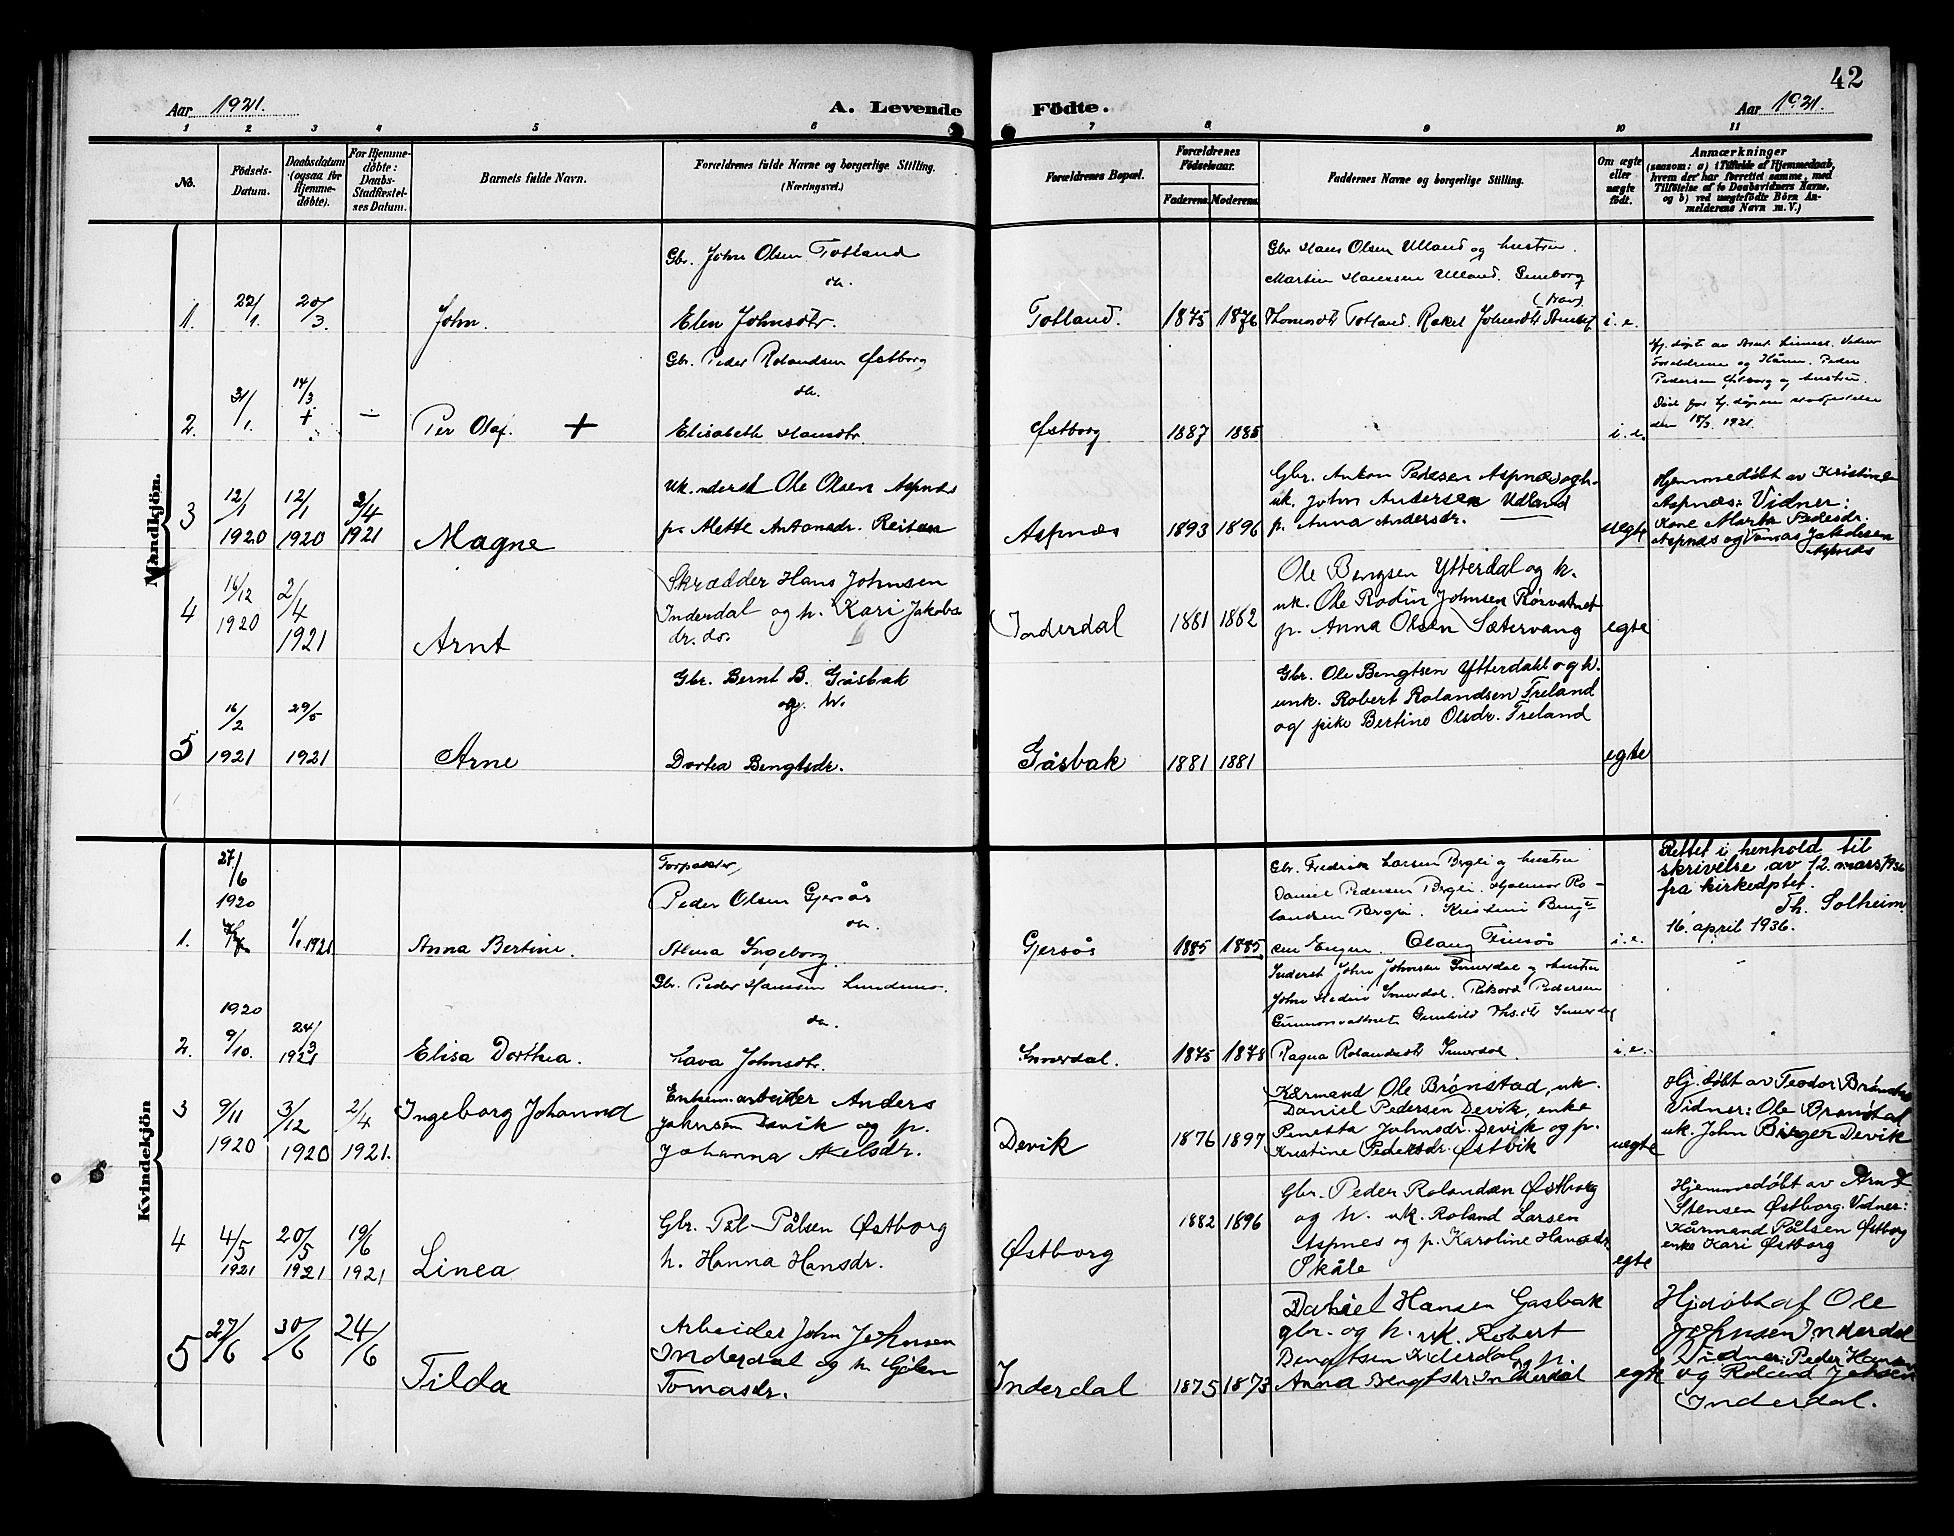 42
Aar 1921.
A. Levende Födte.
Aar 1921.
1 2 3 4 5 6 7 8 9 10 11
No.
Födsels-
Datum.
Daabsdatum
(ogsaa for
Hjemme-
døbte).
For Hjemme-
døbte:
Daabs-
Stadfæstel-
ses Datum.
Barnets fulde Navn.
Forældrenes fulde Navne og borgerlige Stilling.
(Næringsvei.)
Forældrenes Bopæl.
Forældrenes
Födselsaar.
Faderens. Moderens.
Faddernes Navne og borgerlige Stilling.
Om ægte
eller
uægte
født.
Anmærkninger
(saasom: a) i Tilfælde af Hjemmedaab,
hvem der har forrettet samme, med
Tilföielse af to Daabsvidners Navne,
og b) ved uægtefödte Börn An-
melderens Navn m. V.)
Mandkjön.
1. 22/1. 20/3. John.
Gbr. John Olsen Totland
Elen Johnsdtr.
Totland. 1875 1876
Gbr Hans Olsen Ulland og hustru
Ulland.
Totland. Rakel
i. e.
2. 31/1. 14/3 + — Per Olaf. +
Gbr. Peder Rolandsen Østborg
Elisabeth Hansdtr.
Østborg 1887 1885
i. e.
Pedersen Østborg og hustru.
1921.
3 12/1 1920 12/1 1920 3/4 1921 Magne
Ole Olsen Aspnes
p. Mette Antonsdr. Reitan
Aspnæs 1893 1896
Gbr. Anton Pedersen Aspnæs og h.
uk. John Andersen Udland
p. Anna Andersdr.
uegte
Hjemmedøbt av Kristine
Aspnæs: Vidner:
Kone Marta Pedesdr.
Aspnæs og Tomas Jakobsen
Aspnæs
4 16/12 1920 2/4 1921 Arnt
Skrædder Hans Johnsen
Inderdal og h. Kari Jakobs
dr. do.
Inderdal 1881 1882
Ole Bengsen Ytterdal og h.
uk. Ole Rodin Johnsen Rörvatnet
p. Anna Olsen Sætervang
egte
5 16/2 1921 29/5 1921 Arne
Gbr. Bernt B. Gåsbak
og h.
Dortea Bengtsdr.
Gåsbak 1881 1881
Gbr. Ole Bengtsen Ytterdahl og h.
unk. Robert Rolandsen Freland
og pike Bertine Olsdr. Freland
egte
Kvindekjön
1. 27/6 1920 1/1 1921 Anna Bertine.
Peder Olsen Gjersøs
Alma Ingeborg
Gjersøs 1885 1885
Gbr. Fredrik Larsen Bergli og hustru
Daniel Pedersen Bergli. Hjalmar Ro-
landsen Bergli. Kristine
i. e.
Rettet i henhold til
skrivelse av 12. mars 1936
fra kirkedptet.
Th. Solheim
16. april 1936.
2. 1920 9/10. 24/3 1921 Elisa Dorthea.
Gbr. Peder Hanssen
Lava Johnsdtr.
Innerdal. 1875 1878
Inderst John Johnsen Innerdal og hustru
Innerdal. Pedersen
Ragna Rolandsdtr Innerdal.
i. e.
3 9/11 1920 3/12 1920 2/4 1921. Ingeborg Johanna
arbeider Anders
Johnsen Devik og p.
Johanna Akelsdr.
Devik 1876 1897
Kårmand Ole Brønstad, uk.
Daniel Pedersen Devik, enke
Penetta Johnsdr. Devik og p.
Kristine Pedersdr. Østvik
uegte
Hj. døbt av Teodor
Vidner: Ole Brønstad
uk. John Birger Devik
4 4/5 1921 20/5 1921 19/6 1921 Linea
Gbr. Pål Pålsen Østborg
h. Hanna Hansdr.
Østborg 1882 1896
Gbr. Peder Rolandsen Østborg
og h. uk. Roland Larsen
Aspnes og p. Karoline Hansdr.
Skåle
egte
Hjemmedøbt av Arnt
Stensen Østborg. Vidner:
Kårmand Pålsen Østborg
enke Kari Østborg
5 27/6 30/6 24/6 Tilda
Arbeider John Johnsen
Inderdal og h
Tomasdr.
Inderdal 1875 1873
Daniel Hansen Gasbak
gbr. og h. uk. Robert
Bengtsen Inderdal og p.
Anna Bengtsdr. Inderdal
egte
Hjdøbt af Ole
Johnsen Inderdal
Vidner: Peder Hansen
og Roland Jensen
Inderdal.